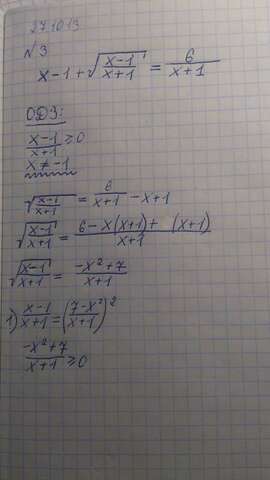 27.10.13
N 3
x-1+√((x-1)/(x+1)) = 6/(x+1)
ОДЗ:
(x-1)/(x+1) ≥ 0
x ≠ -1
√((x-1)/(x+1)) = 6/(x+1) - x+1
√((x-1)/(x+1)) = (6-x(x+1)+ (x+1))/(x+1)
√((x-1)/(x+1)) = (-x²+7)/(x+1)
1) (x-1)/(x+1) = ((7-x²)/(x+1))²
(-x²+7)/(x+1) ≥ 0